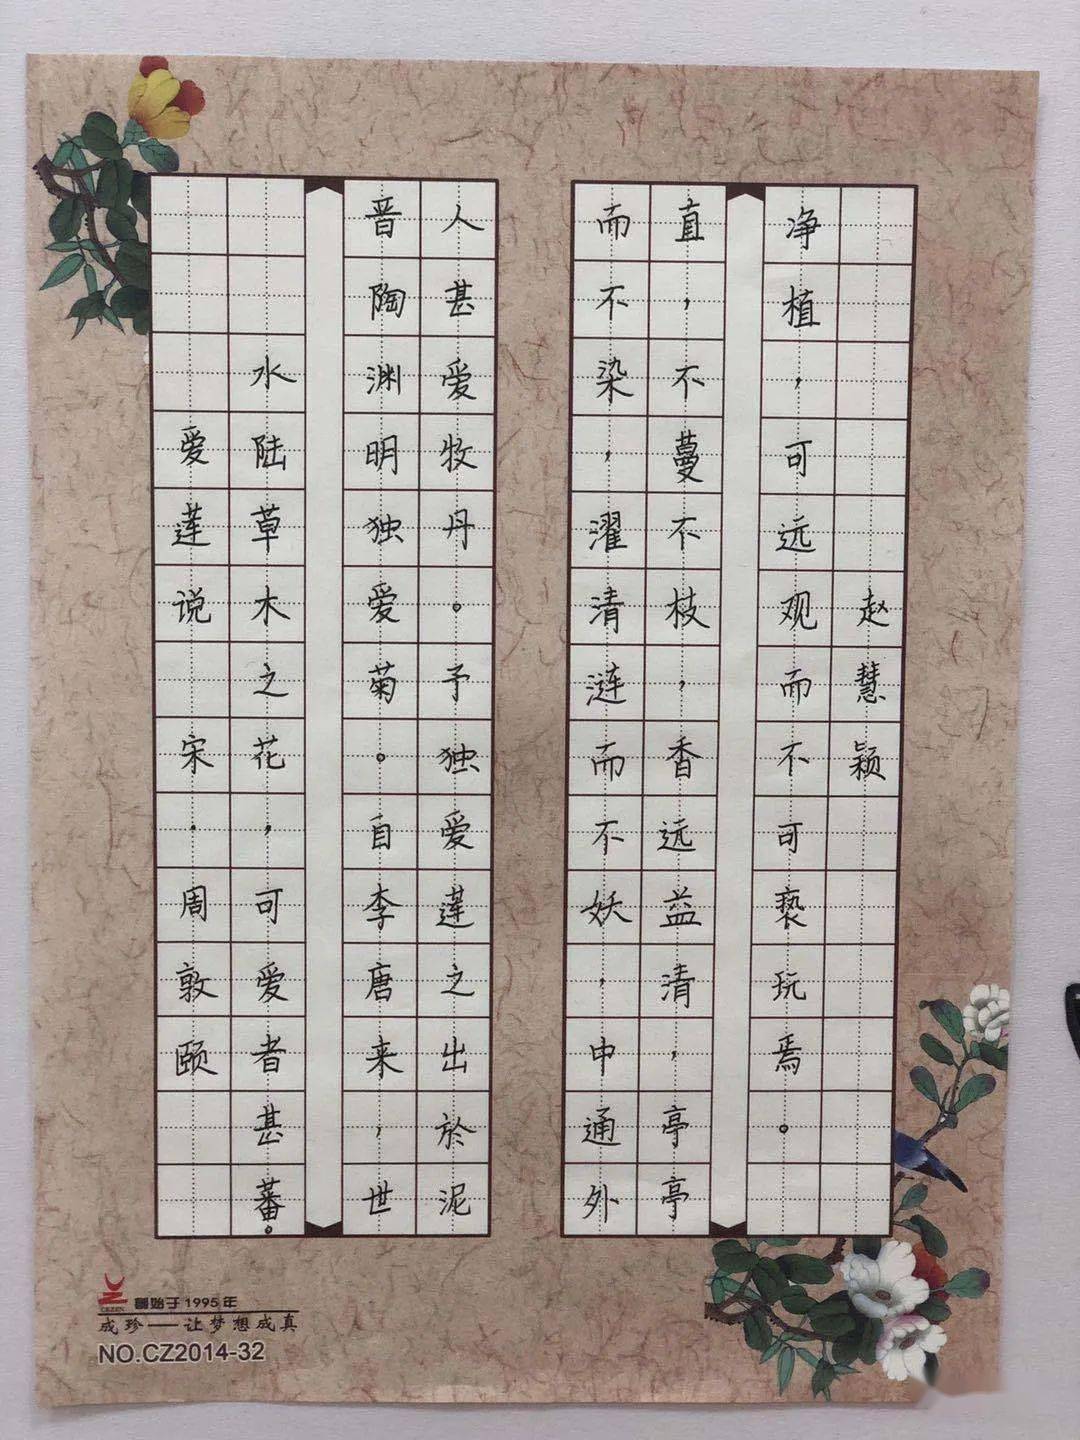 爱莲说 宋·周敦颐
水陆草木之花,可爱者甚蕃。
晋陶渊明独爱菊。自李唐来,世
人甚爱牧丹。予独爱莲之出於泥
而不染,濯清涟而不妖,中通外
直,不蔓不枝,香远益清,亭亭
净植,可远观而不可亵玩焉。
赵慧颖
CEZEN
創始于1995年
成珍——让梦想成真
NO.CZ2014-32